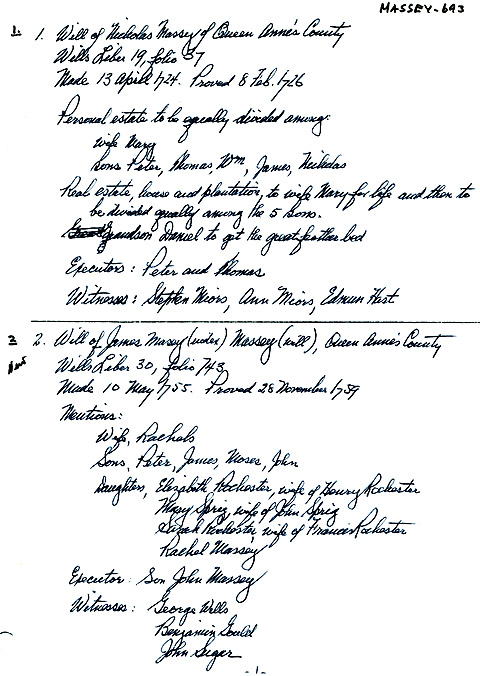 MASSEY-693
1. 1. Will of Nicholas Massey of Queen Anne's County
Wills Liber 19, folio 37
Made 13 April 1724. Proved 8 Feb. 1726
Personal estate to be equally divided among:
wife Mary
Sons Peter, Thomas, Wm, James, Nicholas
Real estate, house and plantation, to wife Mary for life and then to
be divided equally among the 5 sons.
Grandson Daniel to get the great feather bed
Executors: Peter and Thomas
Witnesses: Stephen Miors, Ann Miors, Edmun Hest
2. 2. Will of James Masey (index) Massey (will), Queen Anne's County
Wills Liber 30, folio 743
Made 10 May 1755. Proved 28 November 1759
Mentions:
Wife, Rachels
Sons, Peter, James, Moses, John
Daughters, Elizabeth Rochester, wife of Henry Rochester
Mary Sprig, wife of John Sprig
Sarah Rochester wife of Francis Rochester
Rachel Massey
Executor: Son John Massey
Witnesses: George Wells
Benjamin Gould
John Seegar
-1-